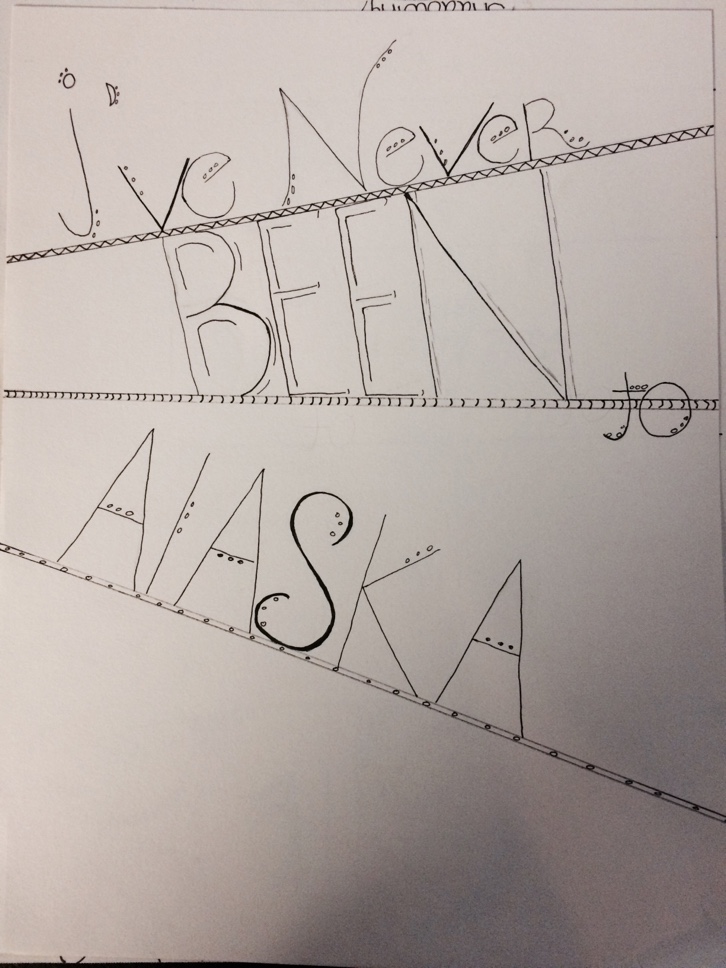 i've Never
BEEN to
AlASKA